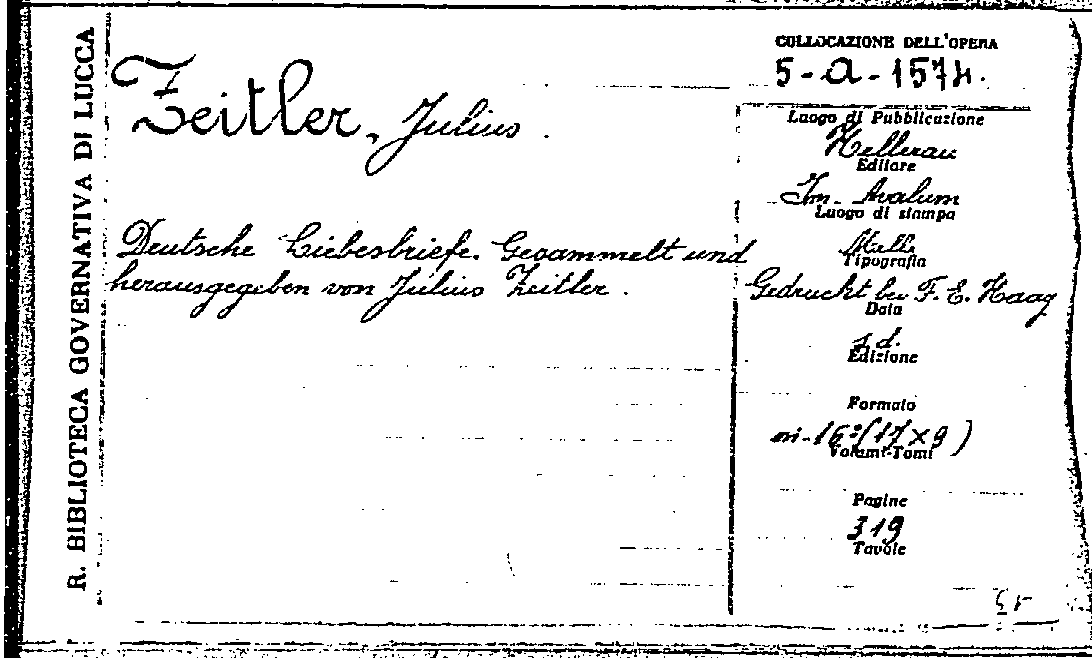 R. BIBLIOTECA GOVERNATIVA DI LUCCA
Zeitler, Julius.
Deutsche Liebesbriefe. Gesammelt und
herausgegeben von Julius Zeitler.
COLLOCAZIONE DELL'OPERA
5-a-1574.
Luogo di Pubblicazione
Hellerau
Editore
Im Avalum
Luogo di stampa
Melle
Tipografia
Gedruckt bei F. E. Haag
Data
s.d.
Edizione
Formato
in-16º (17 × 9)
Volumi-Tomi
Pagine
319
Tavole